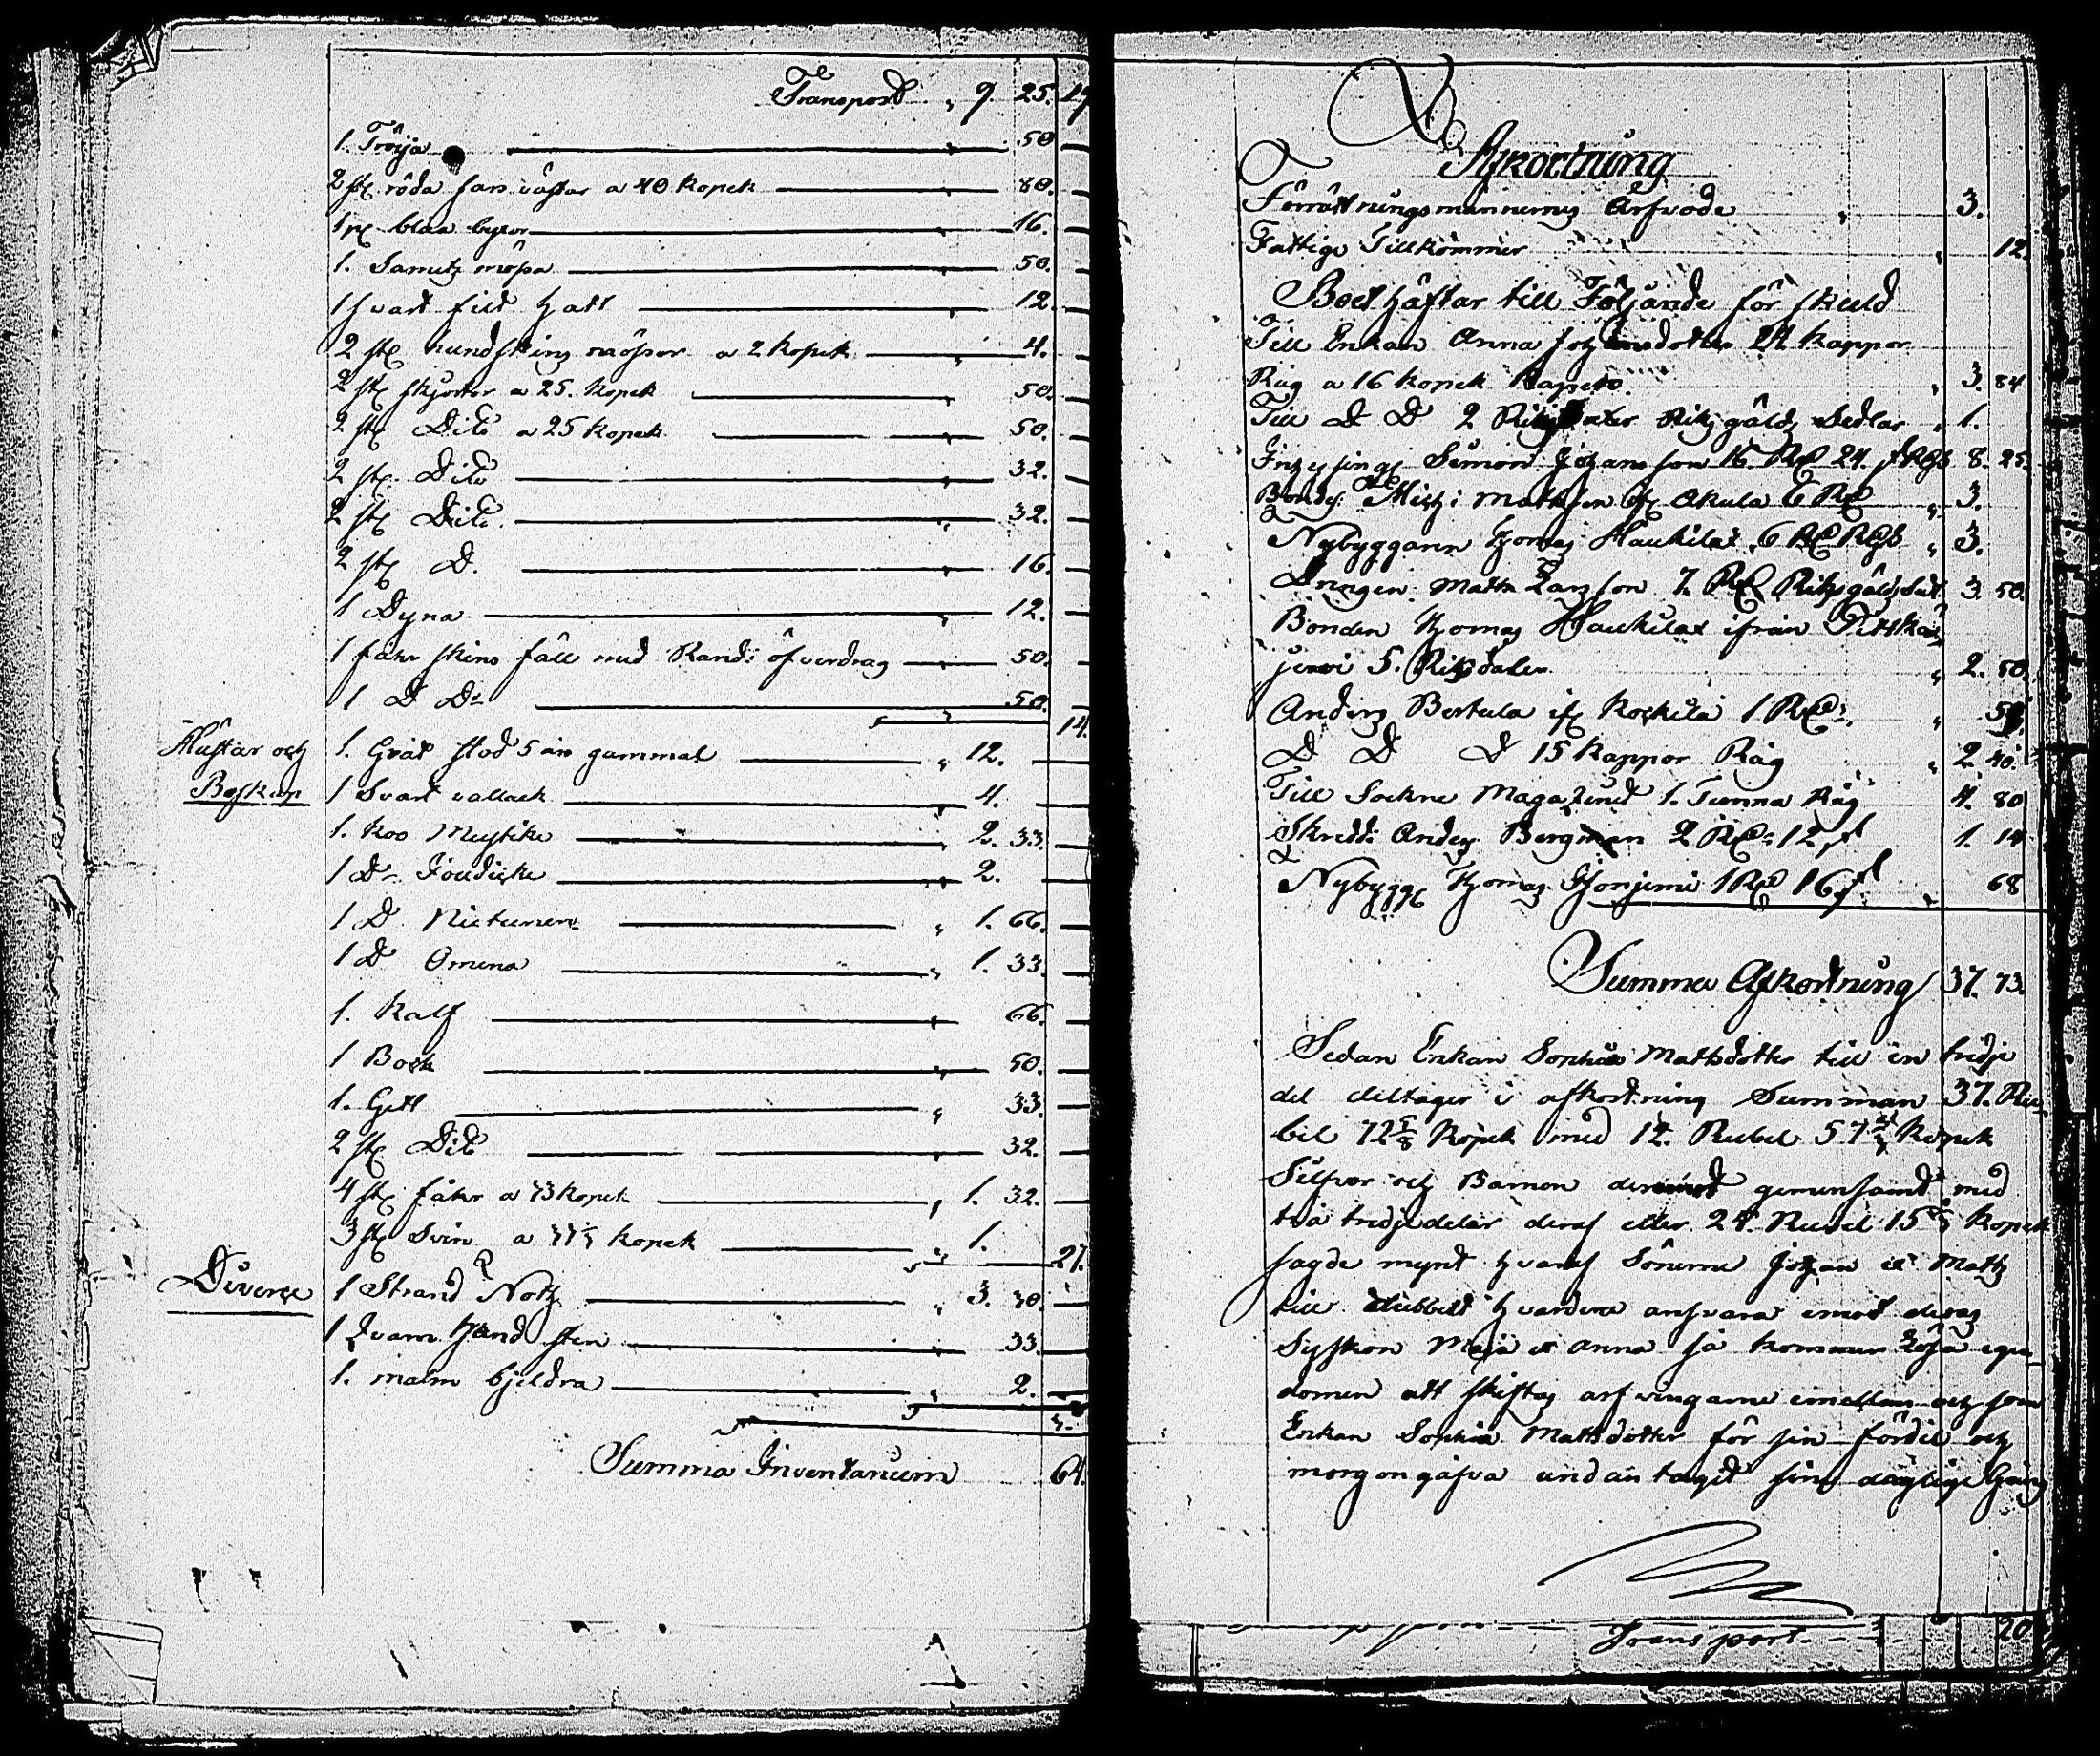 Transport „ 9. 25. 19
1. Tröija 50
2 st. röda fars västar a 40 kopek 80.
1 p. blåa byxor 16.
1. Samitz mössa 50.
1 svart filt hatt 12
2 st. hundskins mössor a 2 kopek 4.
2 st. skjortor a 25. kopek 50.
2 st. Dito a 25 kopek 50.
2 st. Dito 32.
2 st. Dito. 32.
2 st. D. 16.
1 Dyna 12.
1 fåhr skins fäll med Rand: öfverdrag 50.
1 D D: 50.
14.
Hästar och 1. Grat stod 5 år gammal „ 12.
Boskap 1 Svart vallack 4.
1. koo Mustike 2. 33.
1 D: 2.
1 D. „ 1. 66.
1 D Omena 1. 33.
1. Kalf 66.
1 Bock 50.
1. Gett 33.
2 st. Dito 32.
4 st. fåhr a 33 kopek 1. 32.
3 st. Svin a kopek 1.
27.
Diverse 1 Strand Noth 3. 30.
1 Qvarn hand sten 33.
1. malm kjeldra 2.
Summa Inventarium 64.
Afkortning
Förrättningsmännernes Arfvode 3.
Fattige Tillkommer 12.
Boet häftar till Följande för skuld
Till Enkan Anna Johansdotter 24 kappor
Råg a 16 kopek kapen. „ 3. 84
Till D D 2 Riksdaler Riksgäldz Sedlar „ 1.
Inhysing Simon Johansson 16. Rd 24. s Rgs 8. 25.
Bonde: Mich: Mattsson if. Akula 6 Rd „ 3.
Nybyggaren Thomas Haukilax 6 Rd Rgs „ 3.
Drengen Matts Larsson 7. Rd Riksgäldz Sed. 3. 50.
Bonden Thomas Haukilax ifrån
järvi 5. Riksdaler „ 2. 50
Anders Bertula if. Kockila 1 Rd: „ 50
D D D 15 kappor Råg „ 2 40.
Till Sockne Magazined 1. Tunna Råg 4. 80
Skredd: Anders Bergman 2 Rd: 12 s 1. 14
Nybygg. Thomas 1 Rd 16 s „ 68
Summa Afkortning 37. 73.
Sedan Enkan Sophia Mattsdotter till en tredje
del deltager i afkortning Summan 37. Ru-
bel 72 5/8 kopek med 12. Rubel 57 kopek
Silfver och Barnen deremot gemensamt med
två tredjedelar deraf eller 24. Rubel 15 kopek
sagde mynt hvaraf Sönerne Johan et Matts
till dubbelt hvardera ansvara emot deras
Syskon Maja et Anna så kommer Lösa egen-
domen att skiftas arfvingarne emellan och som
Enkan Sophia Mattsdotter för sin fördel och
morgongåfva undantagit sine daglige Gång
Transport 20